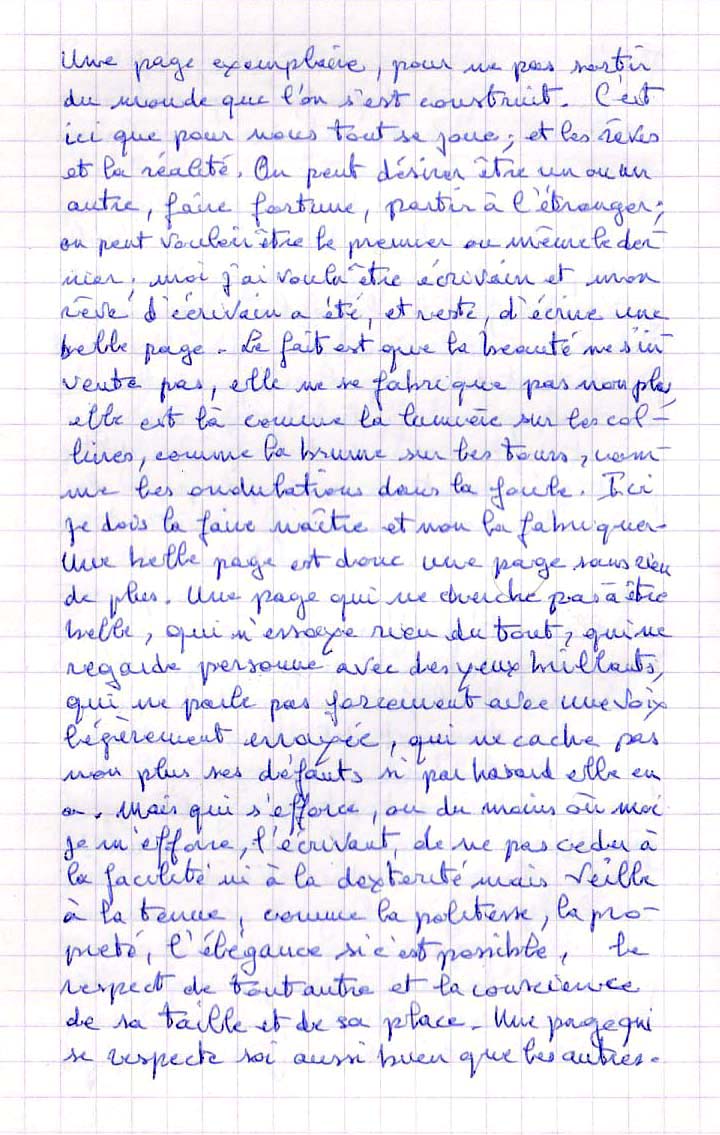 Une page exemplaire, pour ne pas sortir
du monde que l'on s'est construit. C'est
ici que pour nous tout se joue ; et les rêves
et la réalité. On peut désirer être un ou un
autre, faire fortune, partir à l'étranger ;
on peut vouloir être le premier ou même le der-
nier ; moi j'ai voulu être écrivain et mon
rêve d'écrivain a été, et reste, d'écrire une
belle page. Le fait est que la beauté ne s'in-
vente pas, elle ne se fabrique pas non plus,
elle est là comme la lumière sur les col-
lines, comme la brume sur les tours, com-
me les ondulations dans la foule. Ici
je dois la faire naître et non la fabriquer.
Une belle page est donc une page sans rien
de plus. Une page qui ne cherche pas à être
belle, qui n'essaye rien du tout, qui ne
regarde personne avec des yeux brillants,
qui ne parle pas forcement avec une voix
légèrement enrayée, qui ne cache pas
non plus ses défauts si par hasard elle en
a. Mais qui s'efforce, ou du moins où moi
je m'efforce, l'écrivant, de ne pas ceder à
la facilité ni à la dexterité mais veille
à la tenue, comme la politesse, la pro-
preté, l'élégance si c'est possible, le
respect de tout autre et la conscience
de sa taille et de sa place. Une page qui
se respecte soi aussi bien que les autres.